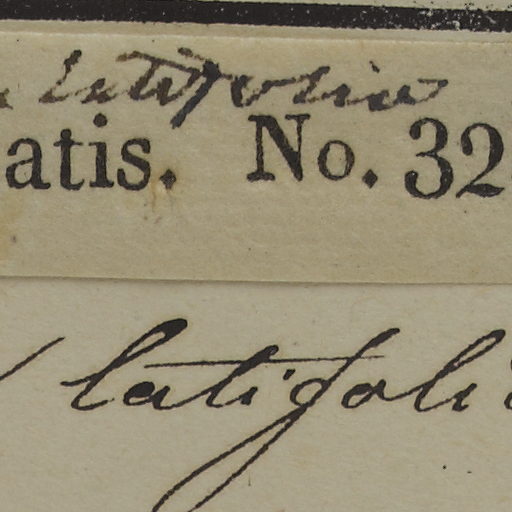 latifolia
atis. No. 32
latifoli